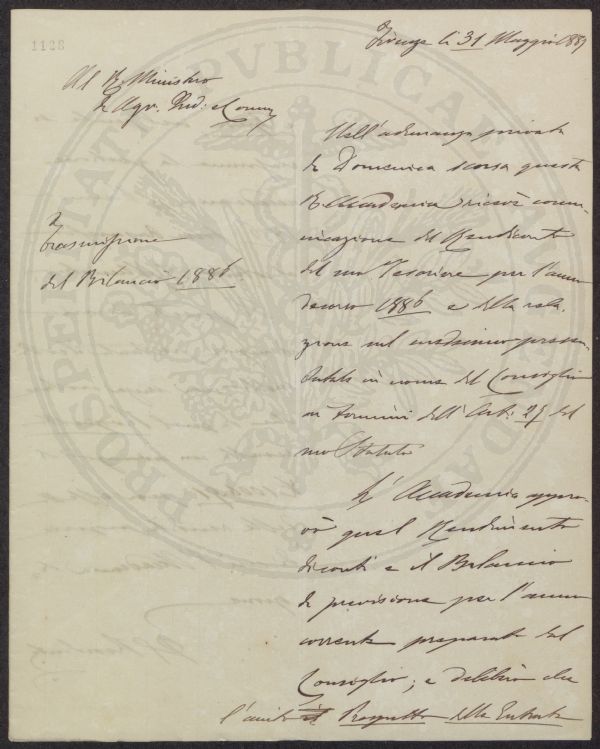 1128
Firenze li 31 Maggio 1887
Al R. Ministro
di Agr. Ind: e Comm
Trasmissione
del Bilancio 1886
Nell'adunanza privata
di Domenica scorsa questa
R. Accademia ricevè comu-
nicazione del Rendiconto
del suo Tesoriere per l'anno
decorso 1886 e della rela-
zione sul medesimo presen-
tatale in nome del Consiglio
ai termini dell'Art: 27 del
suo Statuto
L'Accademia appro-
vò quel Rendimento
di conti e il Bilancio
di previsione per l'anno
corrente preparato dal
Consiglio; e deliberò che
l'unito Prospetto delle Entrate
PROSPERITATI PUBLICAE AUGENDAE